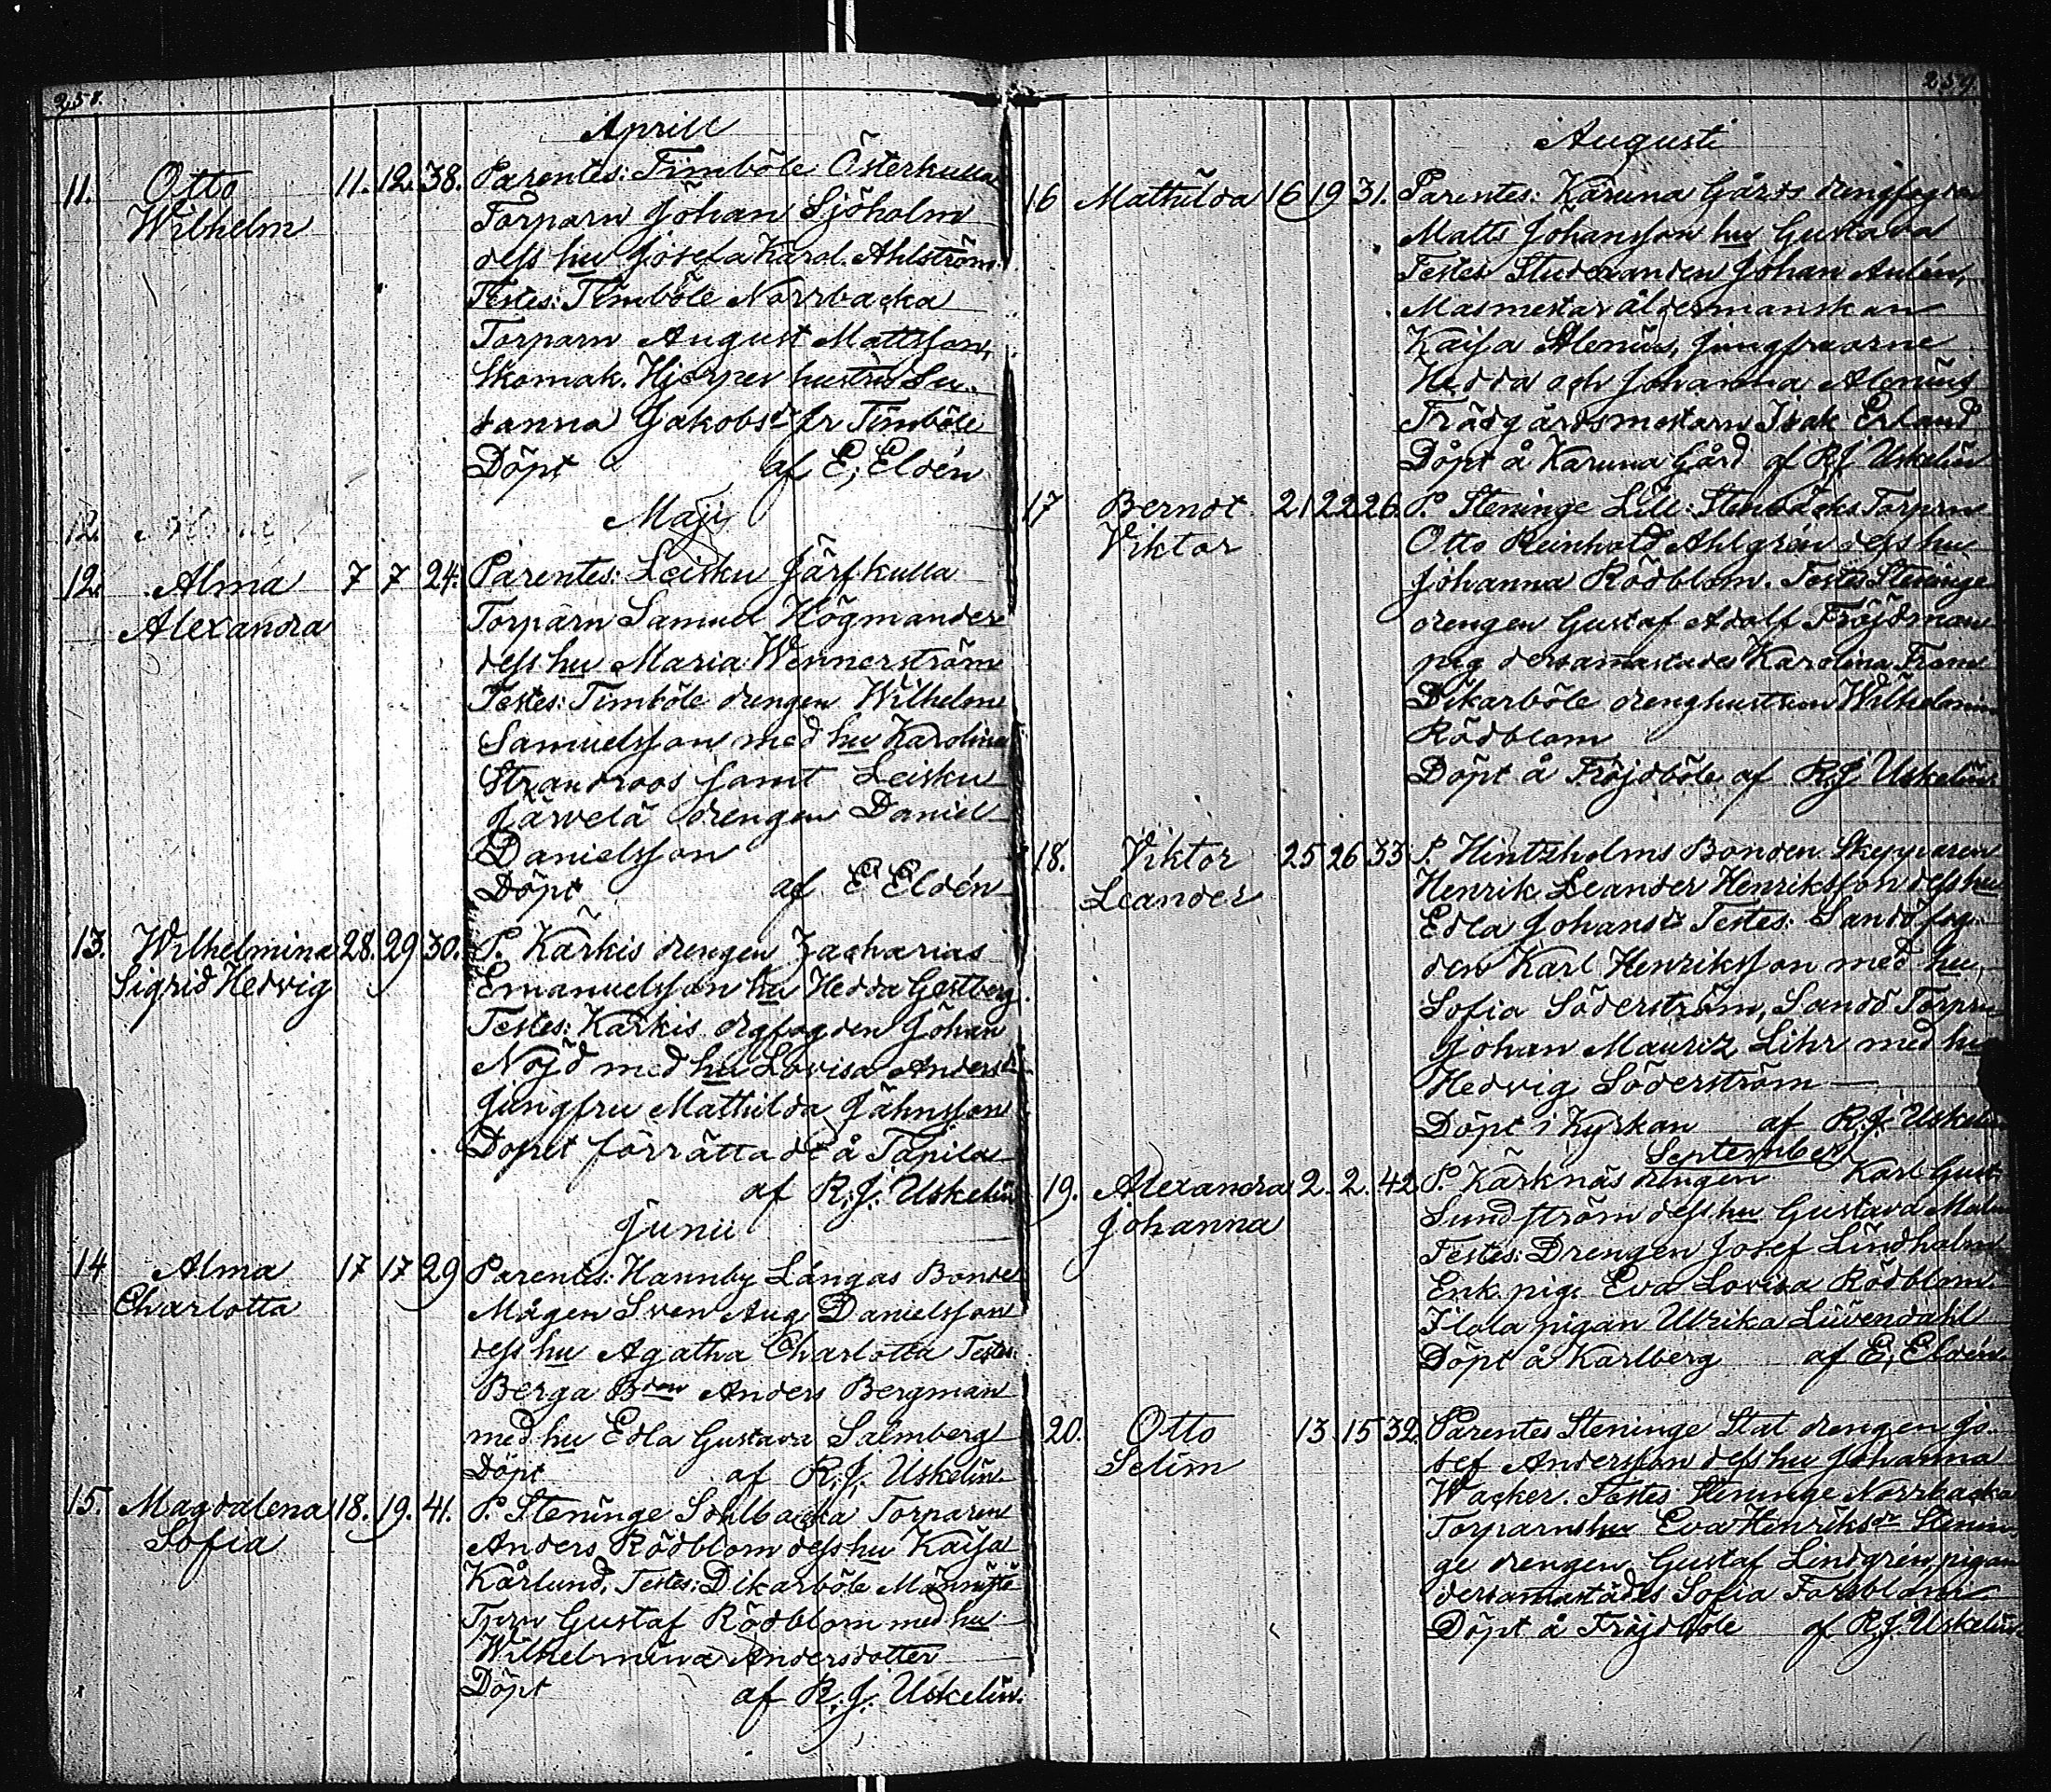 258.
Aprill
11. Otto 11. 12. 38. Parentes: Fimböle Österkulla
Wilhelm Torparn Johan Sjöholm
dess hu Josefa Karol. Ahlström.
Testes: Timböle Norrbacka
Torparn August Mattsson,
Skomak. Hjerpes hustru Su-
sanna Jakobsdr fr Timböle
Döpt af E, Eldén
12. Maji
12. Alma 7 7 24. Parentes: Leisku Järfkulla
Alexandra Torparn Samuel Högmander
dess hu Maria Wennerström
Testes: Timböle drengen Wilhelm
Samuelsson med hu Karolina
Strandroos samt Leisku
Järvelä drengen Daniel
Danielsson
Döpt af E Eldén
13. Wilhelmina 28. 29 30. P. Kärkis drengen Zacharias
Sigrid Hedvig Emanuelsson hu Hedda Gestberg.
Testes: Karkis drgfogden Johan
Nöjd med hu Lovisa Andersdr
Jungfru Mathilda Jahnsson
Dopet förrättadt å Tapila
af R.J. Uskelin
Junii
14 Alma 17 17 29 Parentes: Hannby Långas Bonde
Charlotta Mågen Sven Aug Danielsson
dess hu Agatha Charlotta Testes:
Berga Bden Anders Bergman
med hu Edla Gustava Salmberg
Döpt af R.J. Uskelin
15. Magdalena 18. 19. 41. P. Steninge Sohlbacka Torparen
Sofia Anders Rödblom dess hu Kaisa
Kårlund, Testes: Dikarböle
Tprn Gustaf Rödblom med hu
Wilhelmina Andersdotter
Döpt af R.J. Uskelin.
259.
Augusti
16 Mathilda 16 19 31. Parentes: Karuna Gårds drengfogden
Matts Johansson hu Gustava
Testes Studeranden Johan Aulén,
Masmestaråldermanskan
Kaisa Alenius, Jungfruarne
Hedda och Johanna Alenius
Trädgårdsmestarn Isak Erland
Döpt å Karuna Gård af R.J. Uskelin
17 Berndt 21 22 26. P. Steninge Lill: Stenbäcks Torparn
Viktor Otto Reinhold Ahlgrén dess hu
Johanna Rödblom. Testes Steninge
drengen Gustaf Adolf Fröjdman
pig dersammastädes Karolina
Dikarböle drenghustrun Wilhelmina
Rödblom
Döpt å Fröjdböle af R.J. Uskelin.
18. Viktor 25 26 33 P. Hintzholms Bonden Skepparen
Leander Henrik Leander Henriksson dess hu
Edla Johansdr Testes: Sandö fog-
den Karl Henriksson med hu
Sofia Söderström, Sandö Torprn
Johan Mauriz Lihr med hu
Hedvig Söderström —
Döpt i Kyrkan af R.J. Uskelin
September
19. Alexandra 2. 2. 42 P. Kärknäs drengen Karl Gust.
Johanna Sundström dess hu Gustava
Testes: Drengen Josef Lindholm
Enk. pig. Eva Lovisa Rödblom
Ilola pigan Ulrika Lüvendahl
Döpt å Karlberg af E, Eldén
20. Otto 13 15 32. Parentes Steninge Stat drengen Jo-
Selim sef Andersson dess hu Johanna
Wacker. Testes: Steninge Norrbacka
Torparns hu Eva Henriksdr Stenin-
ge drengen Gustaf Lindgrén, pigan
dersammastädes Sofia Forsblom.
Döpt å Fröjdböle af R.J. Uskelin.